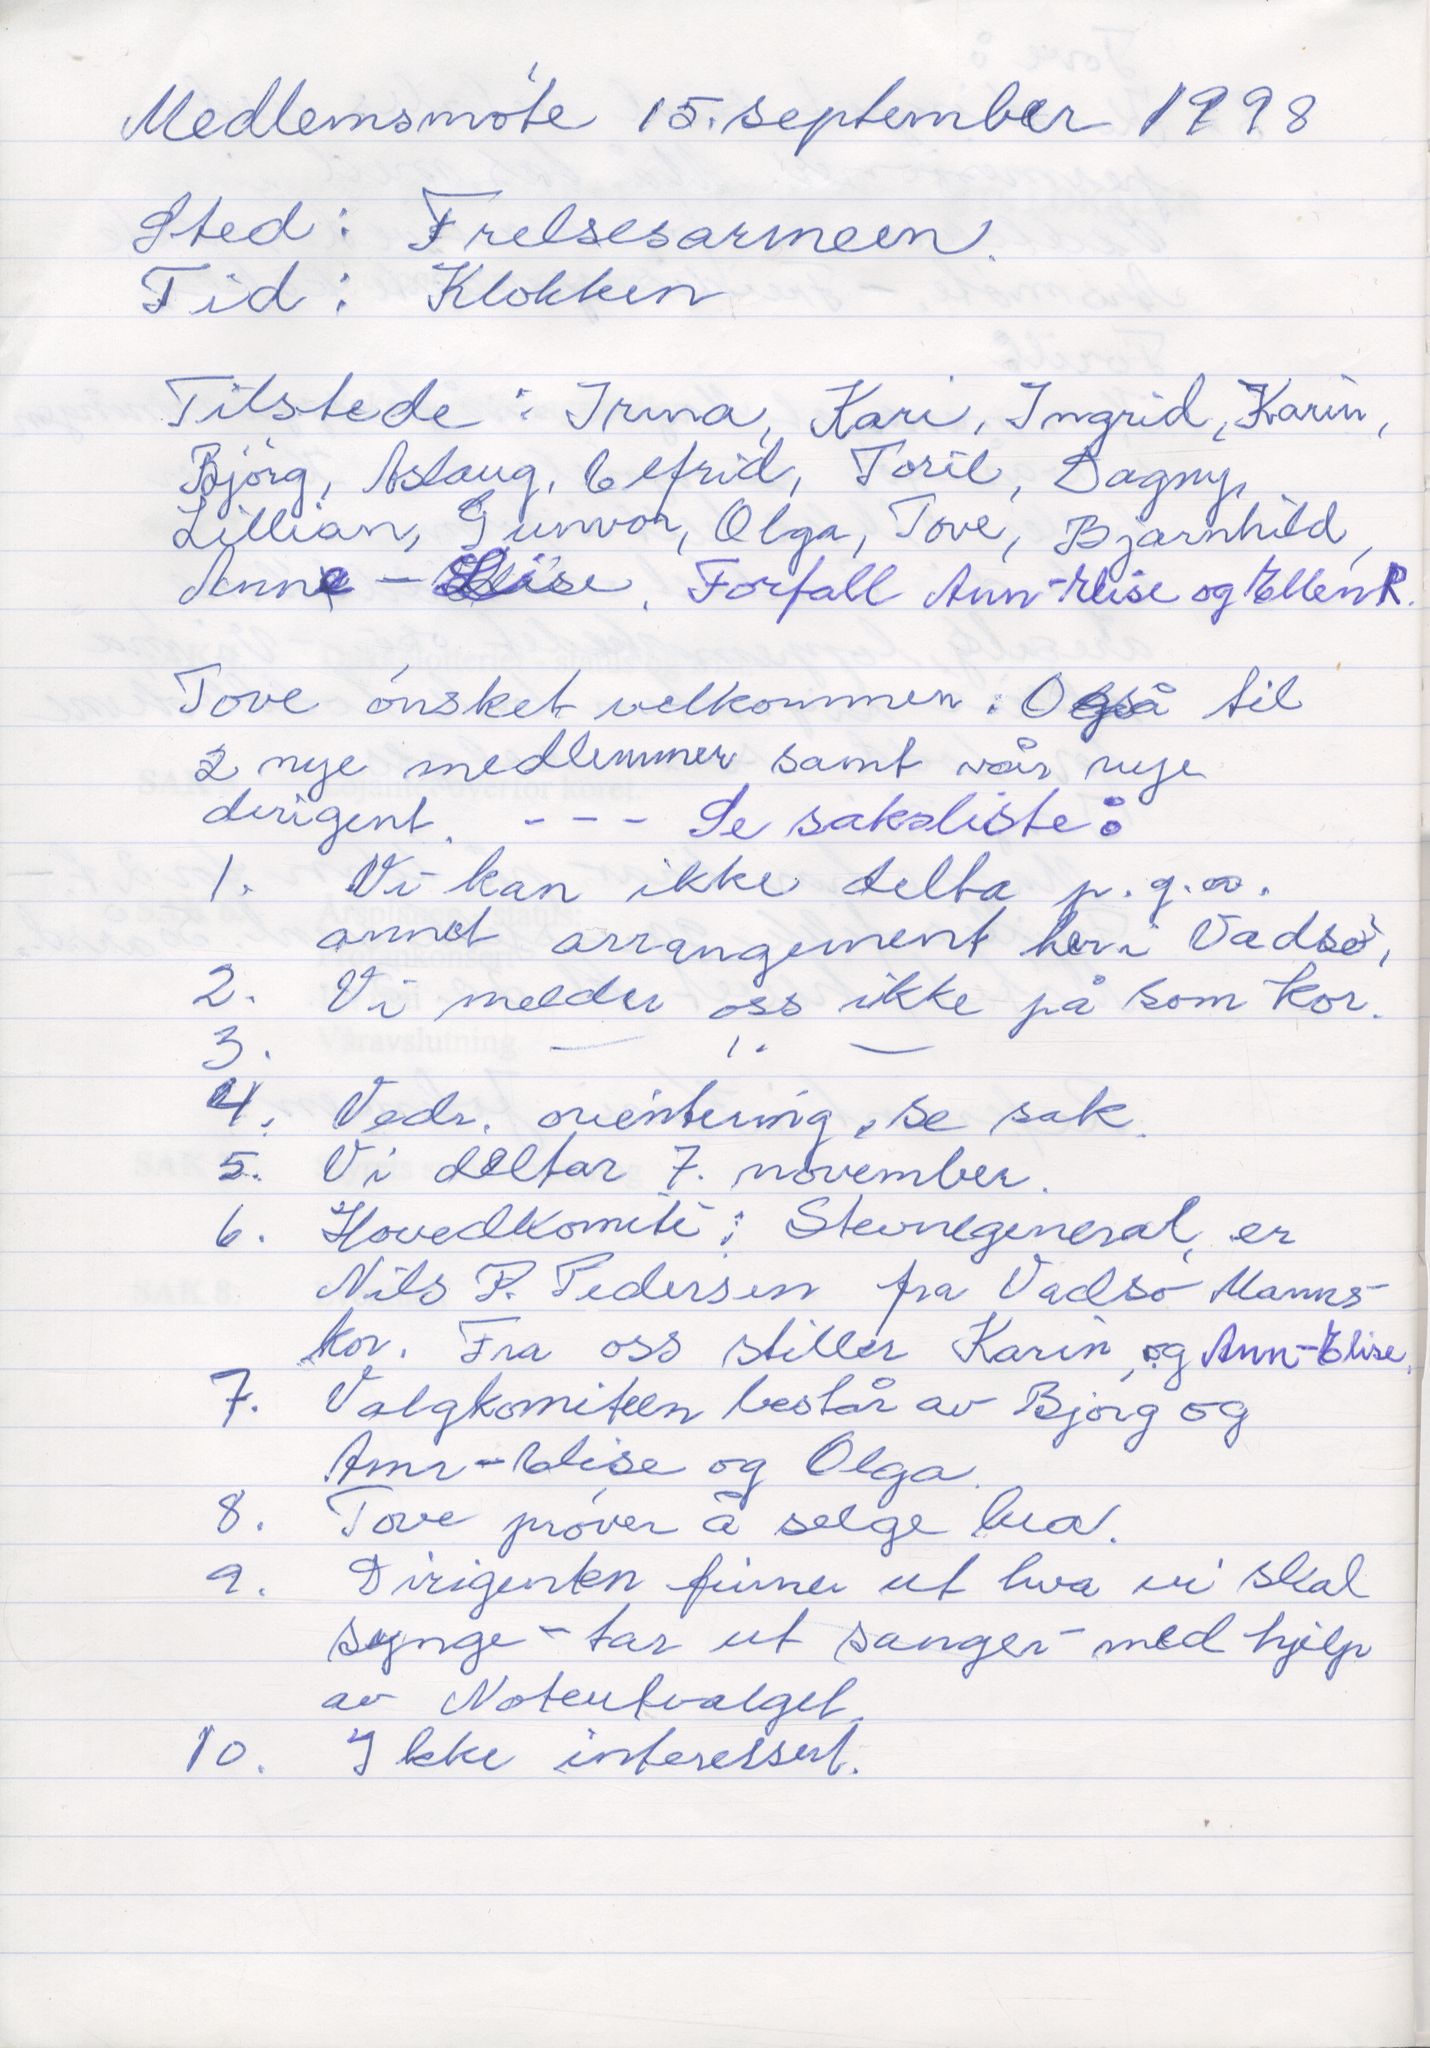 Medlemsmöte 15. september 1998
Sted: Frelsesarmeen.
Tid: Klokken
Tilstede: Irma, Kari, Ingrid, Karin,
Björg, Aslaug, Elfrid, Toril, Dagny,
Lillian, Gunvor, Olga, Tove, Bjarnhild,
Anne - Lise. Forfall Ann-Elise og Ellen R.
Tove ónsket velkommen: Også til
2 nye medlemmer samt vår nye
dirigent. - - - Se saksliste:
1. Vi kan ikke delta p.g.a.
annet arrangement her i Vadsó,
2. Vi melder oss ikke på som kor.
3. — ,, —
4. Vedr. orientering, se sak.
5. Vi deltar 7. november.
6. Hovedkomité: Stevnegeneral, er
Nils P. Pedersen fra Vadsó Manns-
kor. Fra oss stiller Karin, og Ann-Elise.
7. Valgkomiteen består av Bjórg og
Ann-Elise og Olga.
8. Tove próver å selge bua.
9. Dirigenten finner ut hva vi skal
synge - tar ut sanger - med hjelp
av Noteutvalget.
10. Ikke interessert.